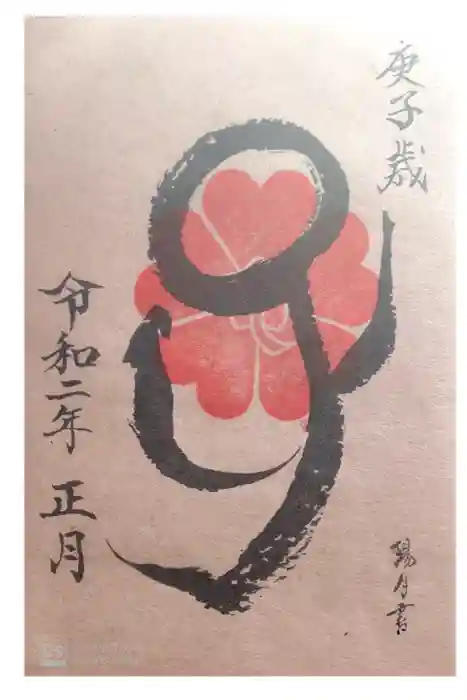 庚子歳
子
令和二年 正月
陽月書